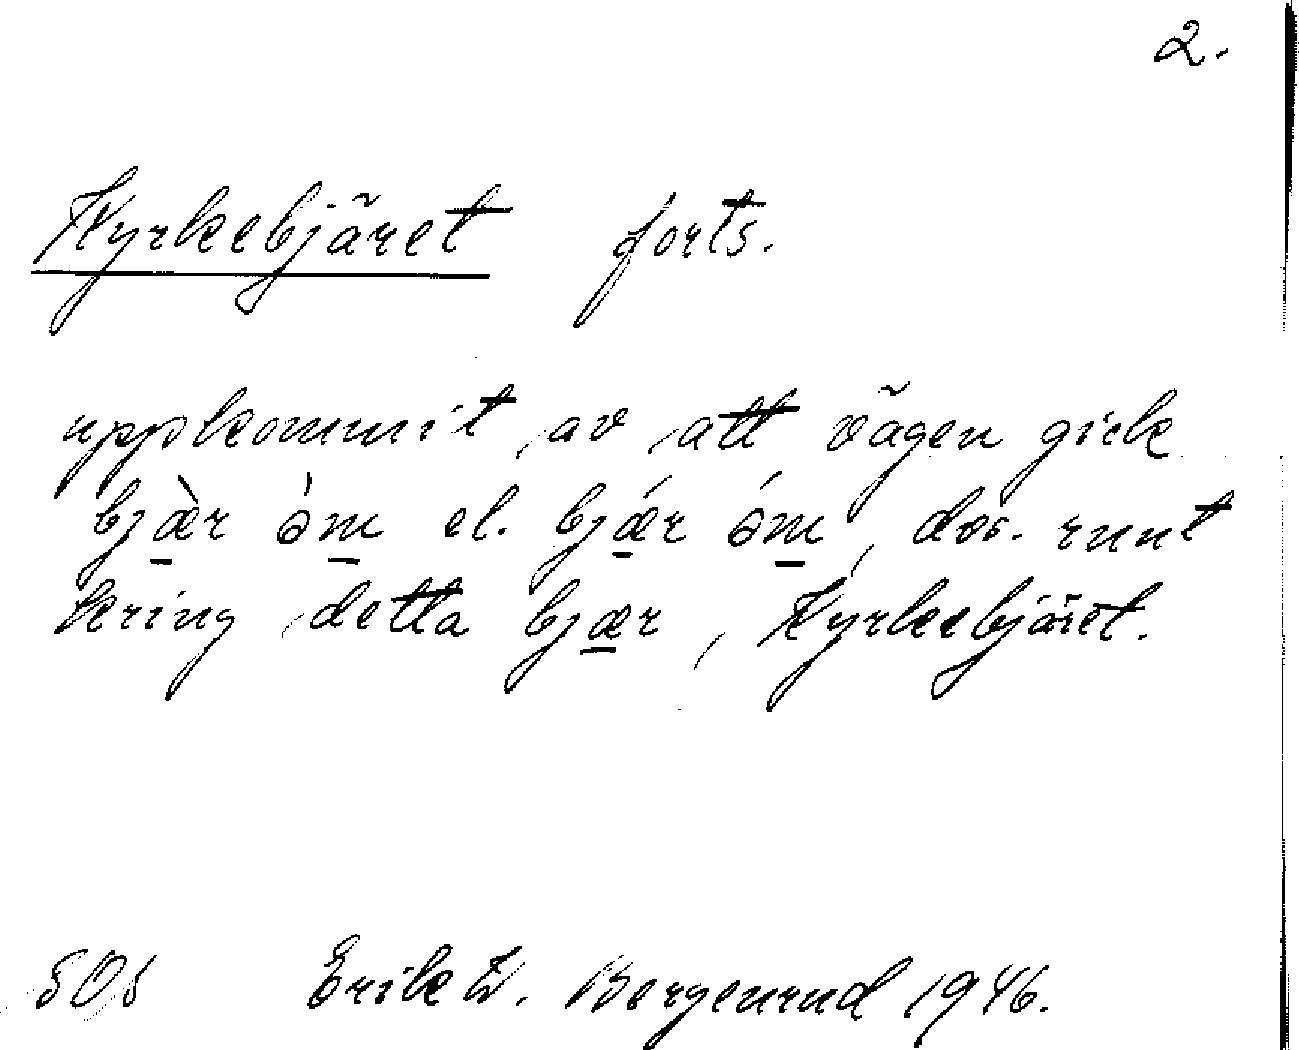 2.
Kyrkebjäret forts.
uppkommit av att vägen gick
bjæ̀r òm el. bjǽr óm, dvs. runt
kring detta bjær, Kyrkebjäret.
SOS Erik W. Bergenrud 1946.